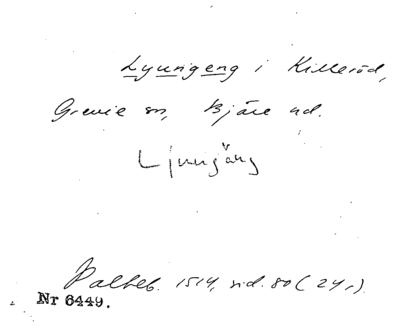 Lyungeng i Killeröd,
Grevie sn, Bjäre hd.
Ljungäng
Palteb. 1514, sid. 80 (24r)
Nr 6449.